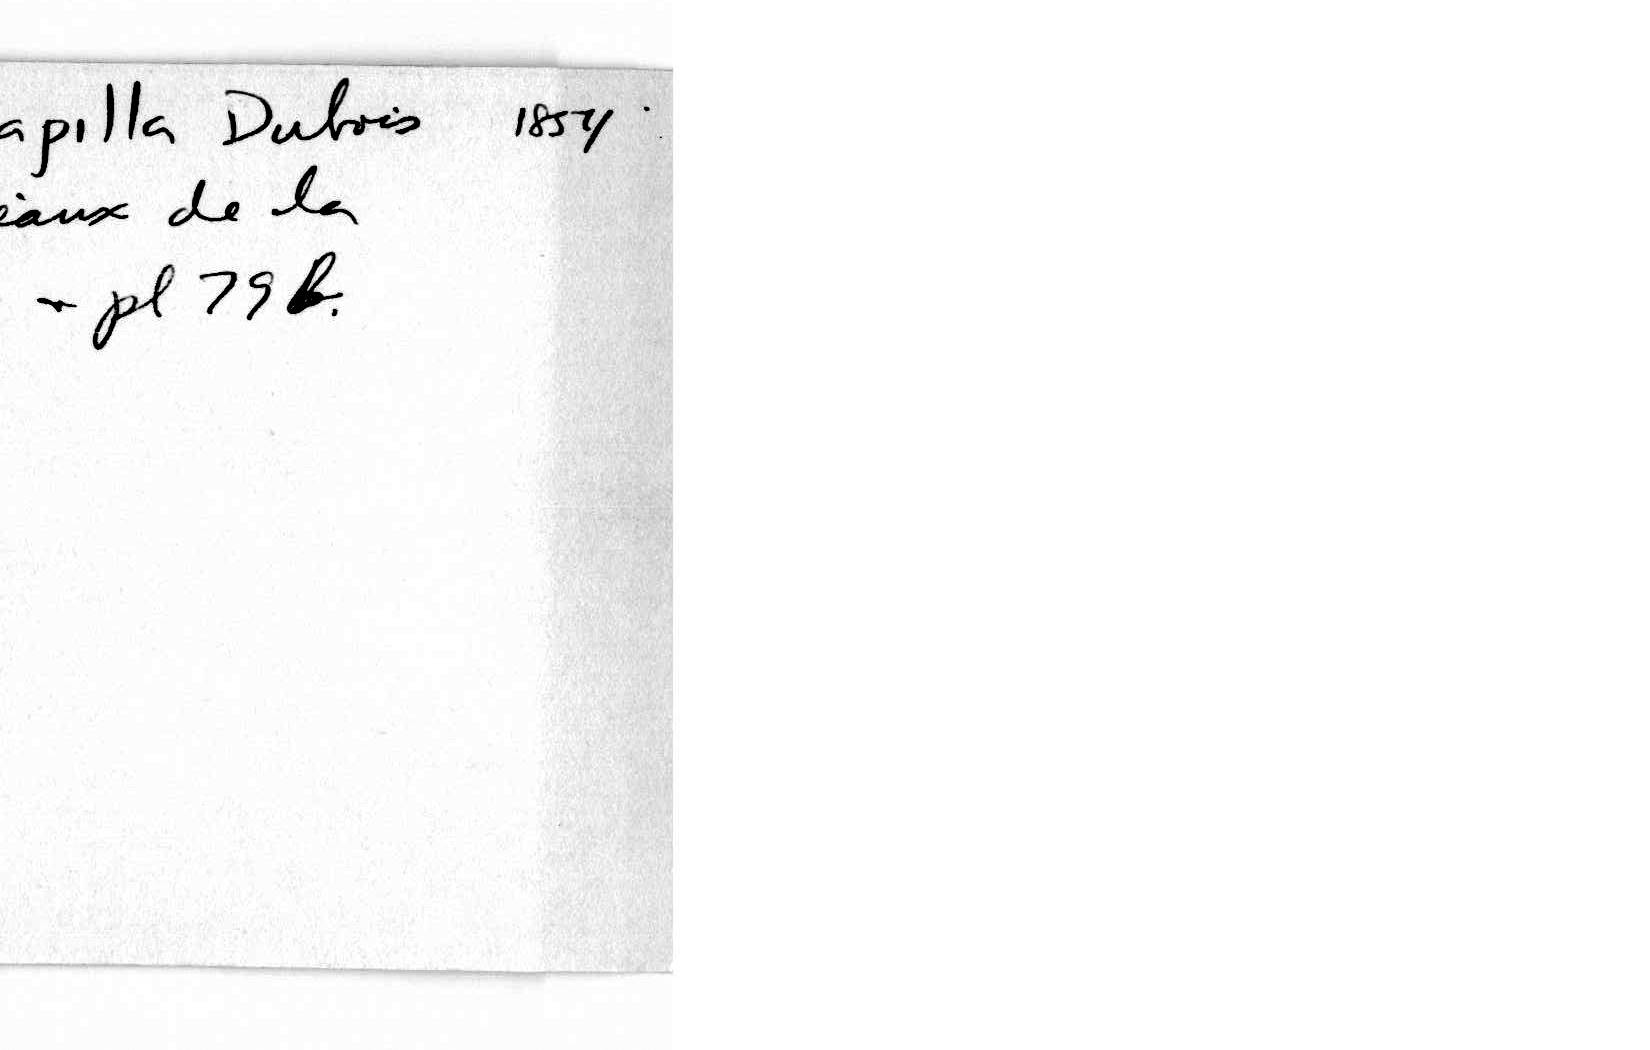 apilla Dubois 1854
eaux de la
pl 79 b.